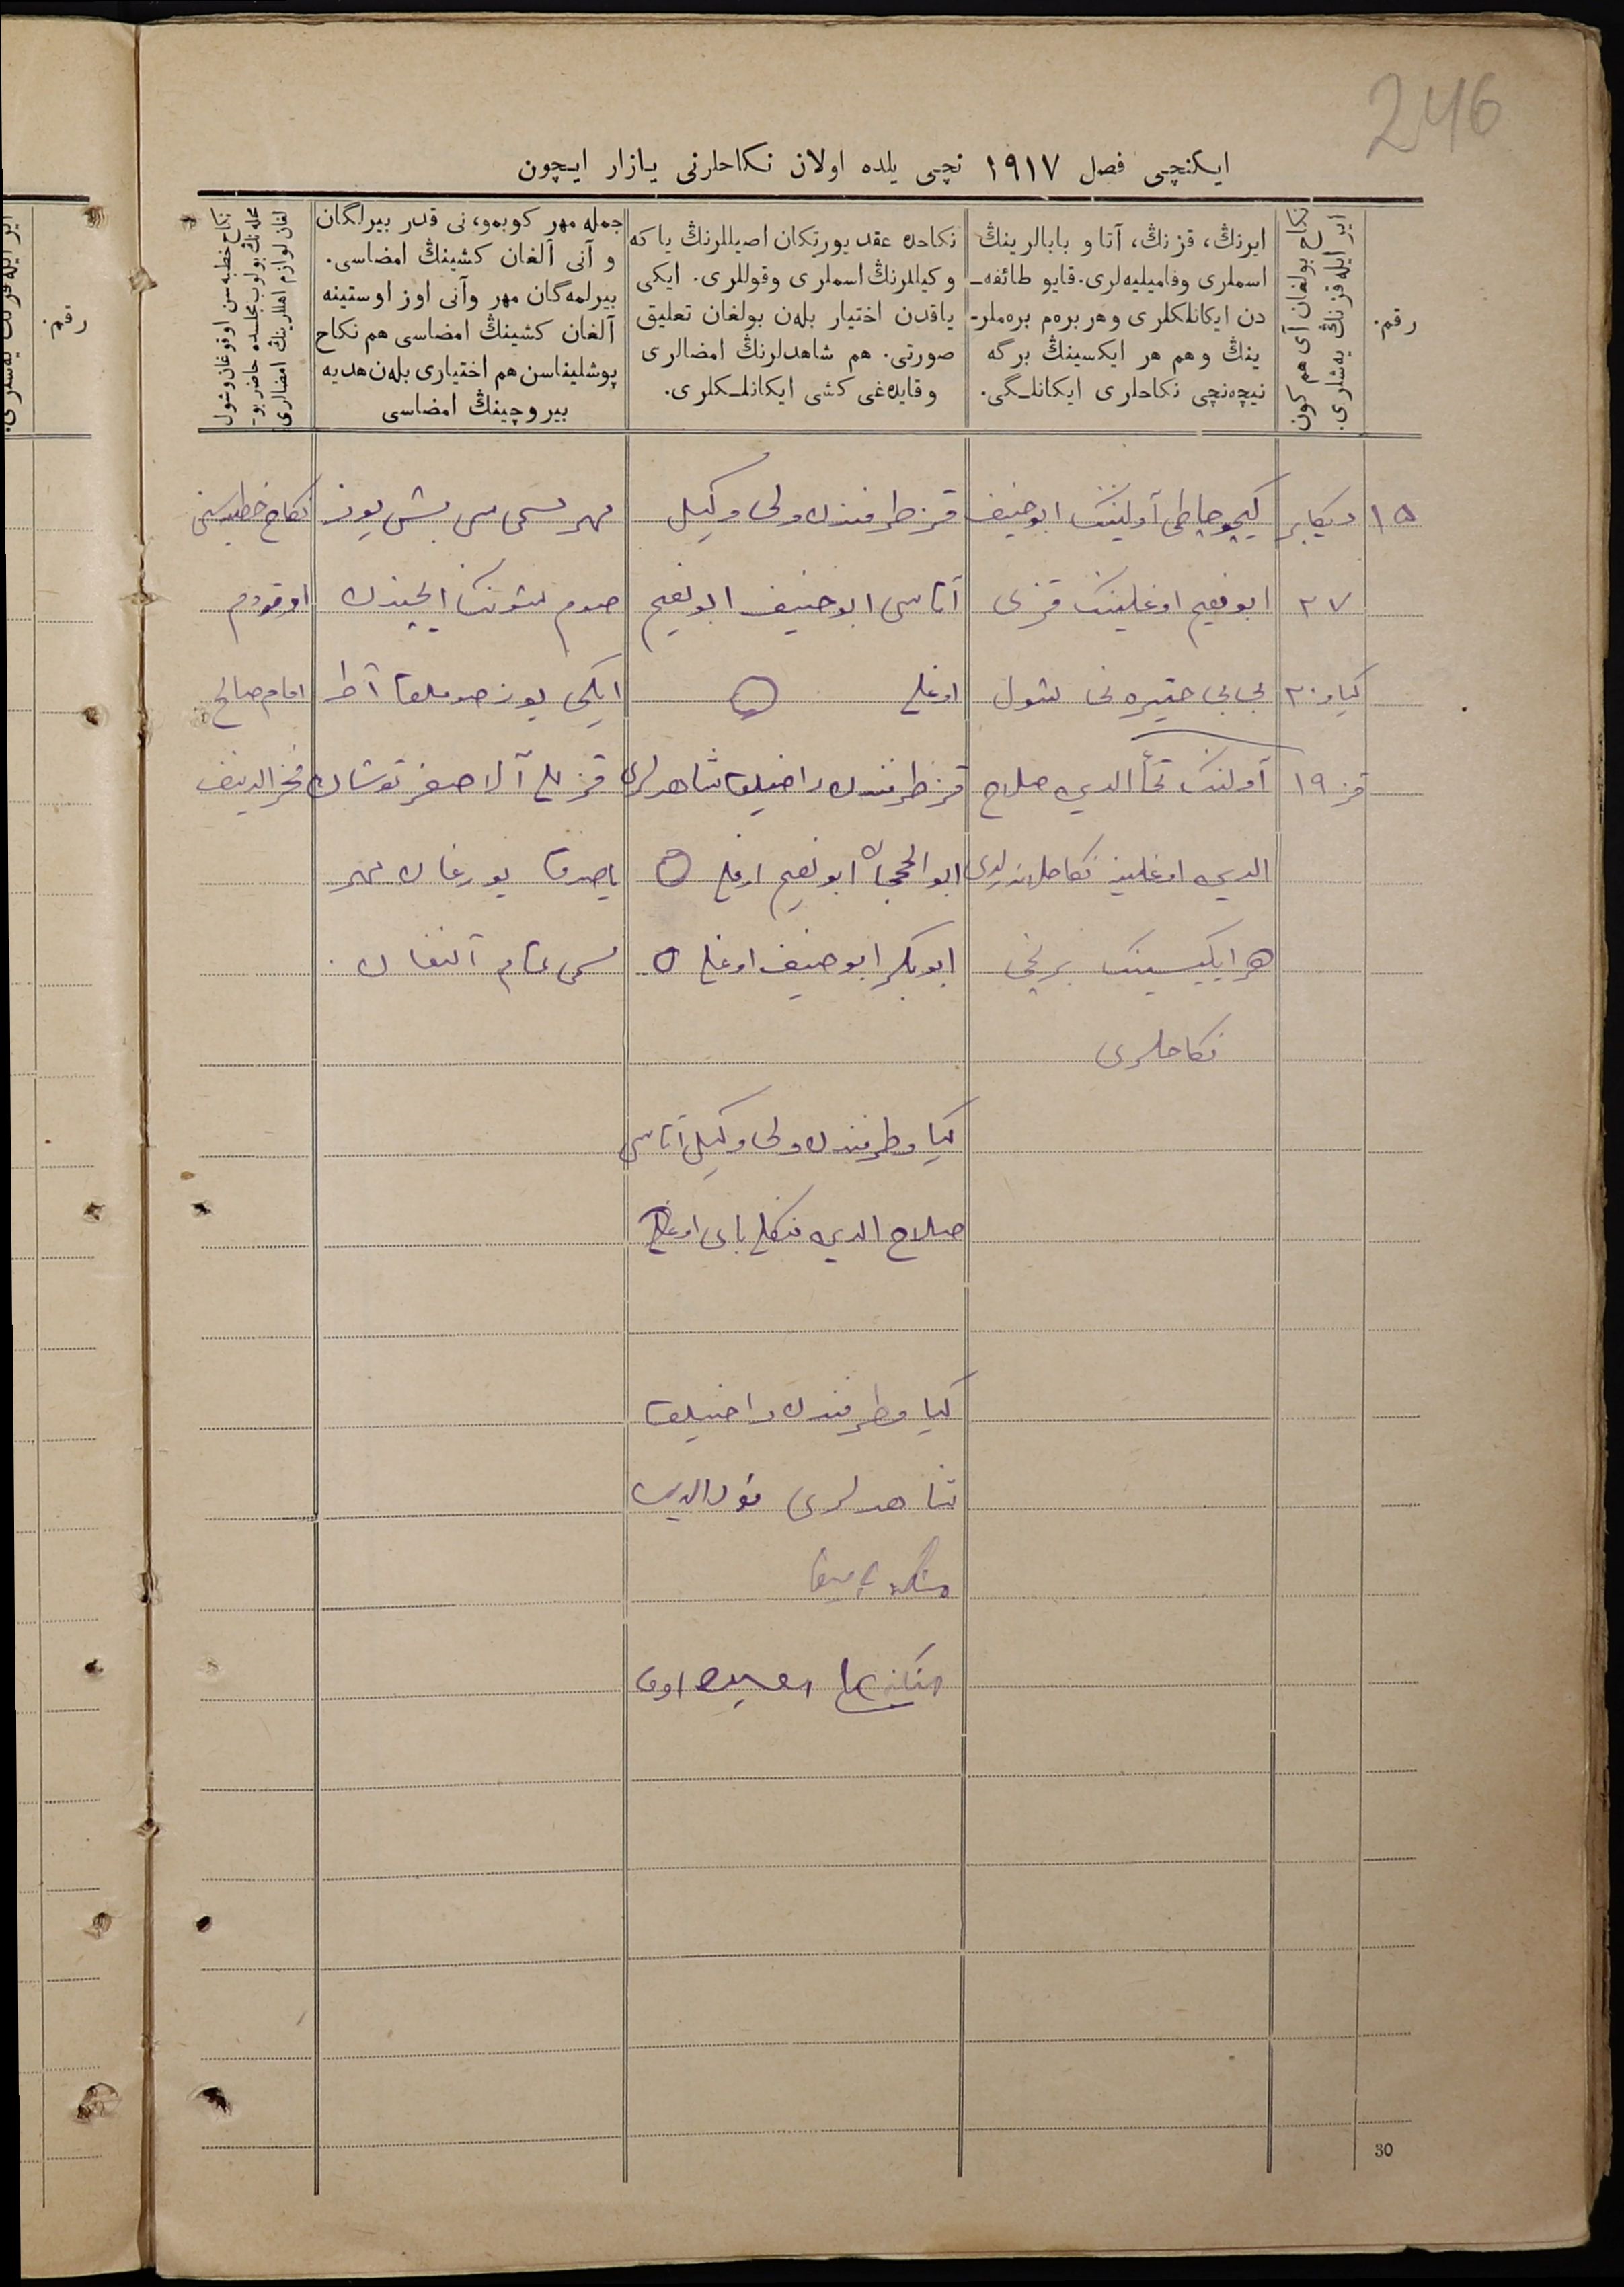 246
ایکنچی فصل ١٩١٧ نچی یلده اولان نکاحلرنی یازار ایچون
رقم.
نکاح بولغان آی هم کون
ایر ایله قزنڭ یەشلری.
ایرنڭ، قزنڭ، آتا و بابالرینڭ
اسملری وفامیلیه‌لری. قایو طائفه‌ـ
دن ایکانلکلری وهر برەم برەملرـ
ینڭ وهم هر ایکسینڭ برگه
نیچەنچی نکاحلری ایکانلـگی.
نکاحده عقد یورتکان اصیللرنڭ یا که
وکیللرنڭ اسملری وقوللری. ایکی
یاقدن اختیار بلەن بولغان تعلیق
صورتی. هم شاهدلرنڭ امضالری
وقایدەغی کشی ایکانلـکلری.
جمله مهر کوبمو، نی قدر بیرلگان
و آنی آلغان کشینڭ امضاسی.
بیرلمەگان مهر وآنی اوز اوستینه
آلغان کشینڭ امضاسی هم نکاح
پوشلیناسن هم اختیاری بلەن هدیه
بیروچینڭ امضاسی
نکاح خطبه‌سن اوقوغان وشول
محله‌نڭ بولوب مجلسده حاضر بوـ
لغان لوازم اهللرینڭ امضالری
١٥
دیکابر
٢٧
کیاو ٢٠
قز ١٩
کیچو چاطی آولیننک ابوحنیف
ابونعیم اوغلینک قزی
بی بی حتیره نی شول
آولننک الدین صلاح
الدین اوغلینه نکاحلاندیلدی
هر ایکیسینک برنچی
نکاحلری
قز طرفندن ولی وکیل
آتاسی ابوحنیف ابونعیم
اوغلی
قز طرفندن راضیلق شاهدلری
ابوالحجان ابونعیم اوغلی
ابوبکر ابوحنیف اوغلی
کیاو طرفندن ولی وکیل آتاسی
صلاح الدین منکلی بای اوغلی
کیاو طرفندن راضیلق
شاهدلری نورالدین
مهر مسمی بش یوز
صوم شوننک ایچندن
ایکی یوز صوملق آط
قزللی آلا صغر توشان
یاصدق یورغان مهر
مسمی تمام آلنغان.
نکاح خطبه‌سنی
اوقودم
امام صالح
فخرالدینف
30
رقم.